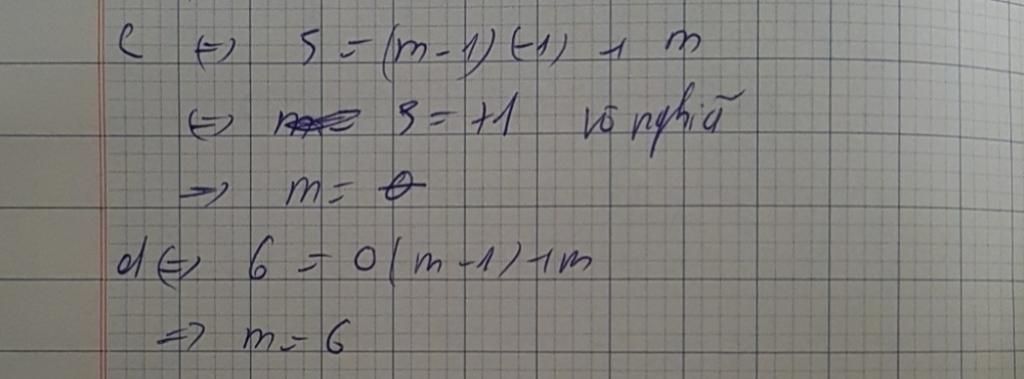 c ⇔ 5 = (m-1)(-1) + m
⇔ 5 = +1 vô nghĩa
⇒ m = ∅
d ⇔ 6 = 0(m-1)+m
⇒ m = 6